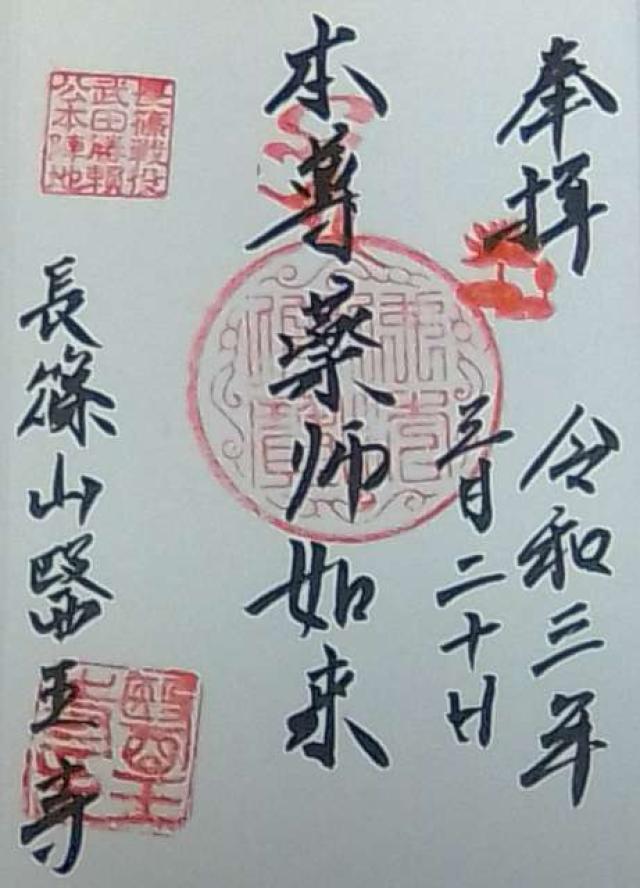 奉拝
令和三年
三月二十日
本尊薬师如来
長篠戦役
武田勝頼
公本陣地
長篠山醫王寺
醫王
寺